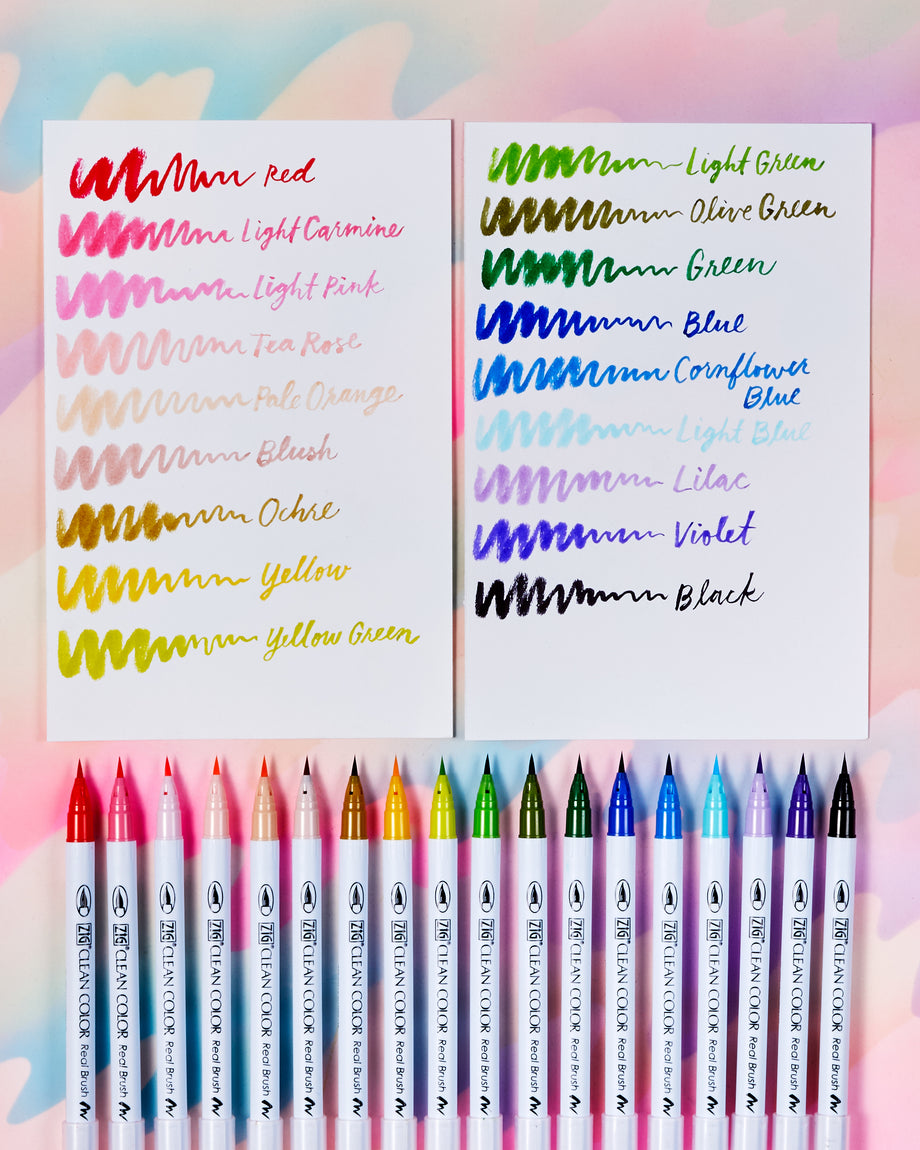 Red
Light Carmine
Light Pink
Tea Rose
Pale Orange
Blush
Ochre
Yellow
Yellow Green
Light Green
Olive Green
Green
Blue
Cornflower
Blue
Light Blue
Lilac
Violet
Black
ZIG CLEAN COLOR Real Brush
ZIG CLEAN COLOR Real Brush
ZIG CLEAN COLOR Real Brush
ZIG CLEAN COLOR Real Brush
ZIG CLEAN COLOR Real Brush
ZIG CLEAN COLOR Real Brush
ZIG CLEAN COLOR Real Brush
ZIG CLEAN COLOR Real Brush
ZIG CLEAN COLOR Real Brush
ZIG CLEAN COLOR Real Brush
ZIG CLEAN COLOR Real Brush
ZIG CLEAN COLOR Real Brush
ZIG CLEAN COLOR Real Brush
ZIG CLEAN COLOR Real Brush
ZIG CLEAN COLOR Real Brush
ZIG CLEAN COLOR Real Brush
ZIG CLEAN COLOR Real Brush
ZIG CLEAN COLOR Real Brush